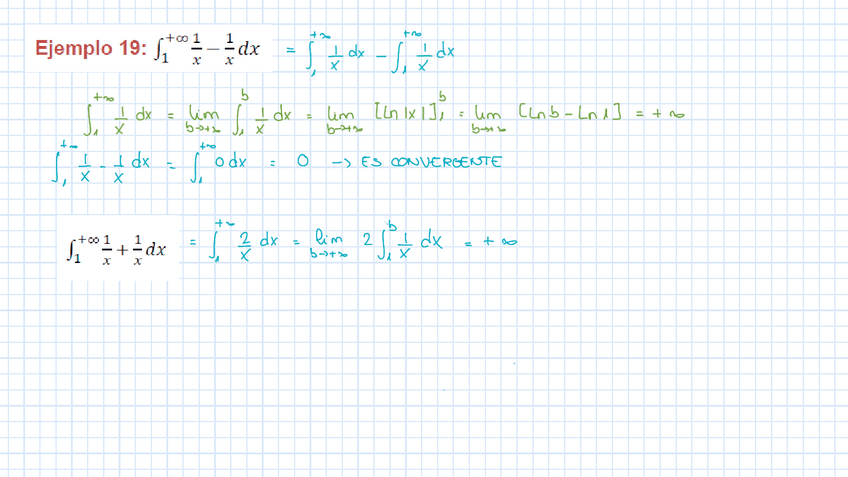 Ejemplo 19: ∫₁^{+∞} 1/x − 1/x dx = ∫₁^{+∞} 1/x dx − ∫₁^{+∞} 1/x dx
∫₁^{+∞} 1/x dx = lim_{b→+∞} ∫₁^b 1/x dx = lim_{b→+∞} [Ln|x|]₁^b = lim_{b→+∞} [Ln b − Ln 1] = +∞
∫₁^{+∞} 1/x − 1/x dx = ∫₁^{+∞} 0 dx = 0 → ES CONVERGENTE
∫₁^{+∞} 1/x + 1/x dx = ∫₁^{+∞} 2/x dx = lim_{b→+∞} 2 ∫₁^b 1/x dx = +∞